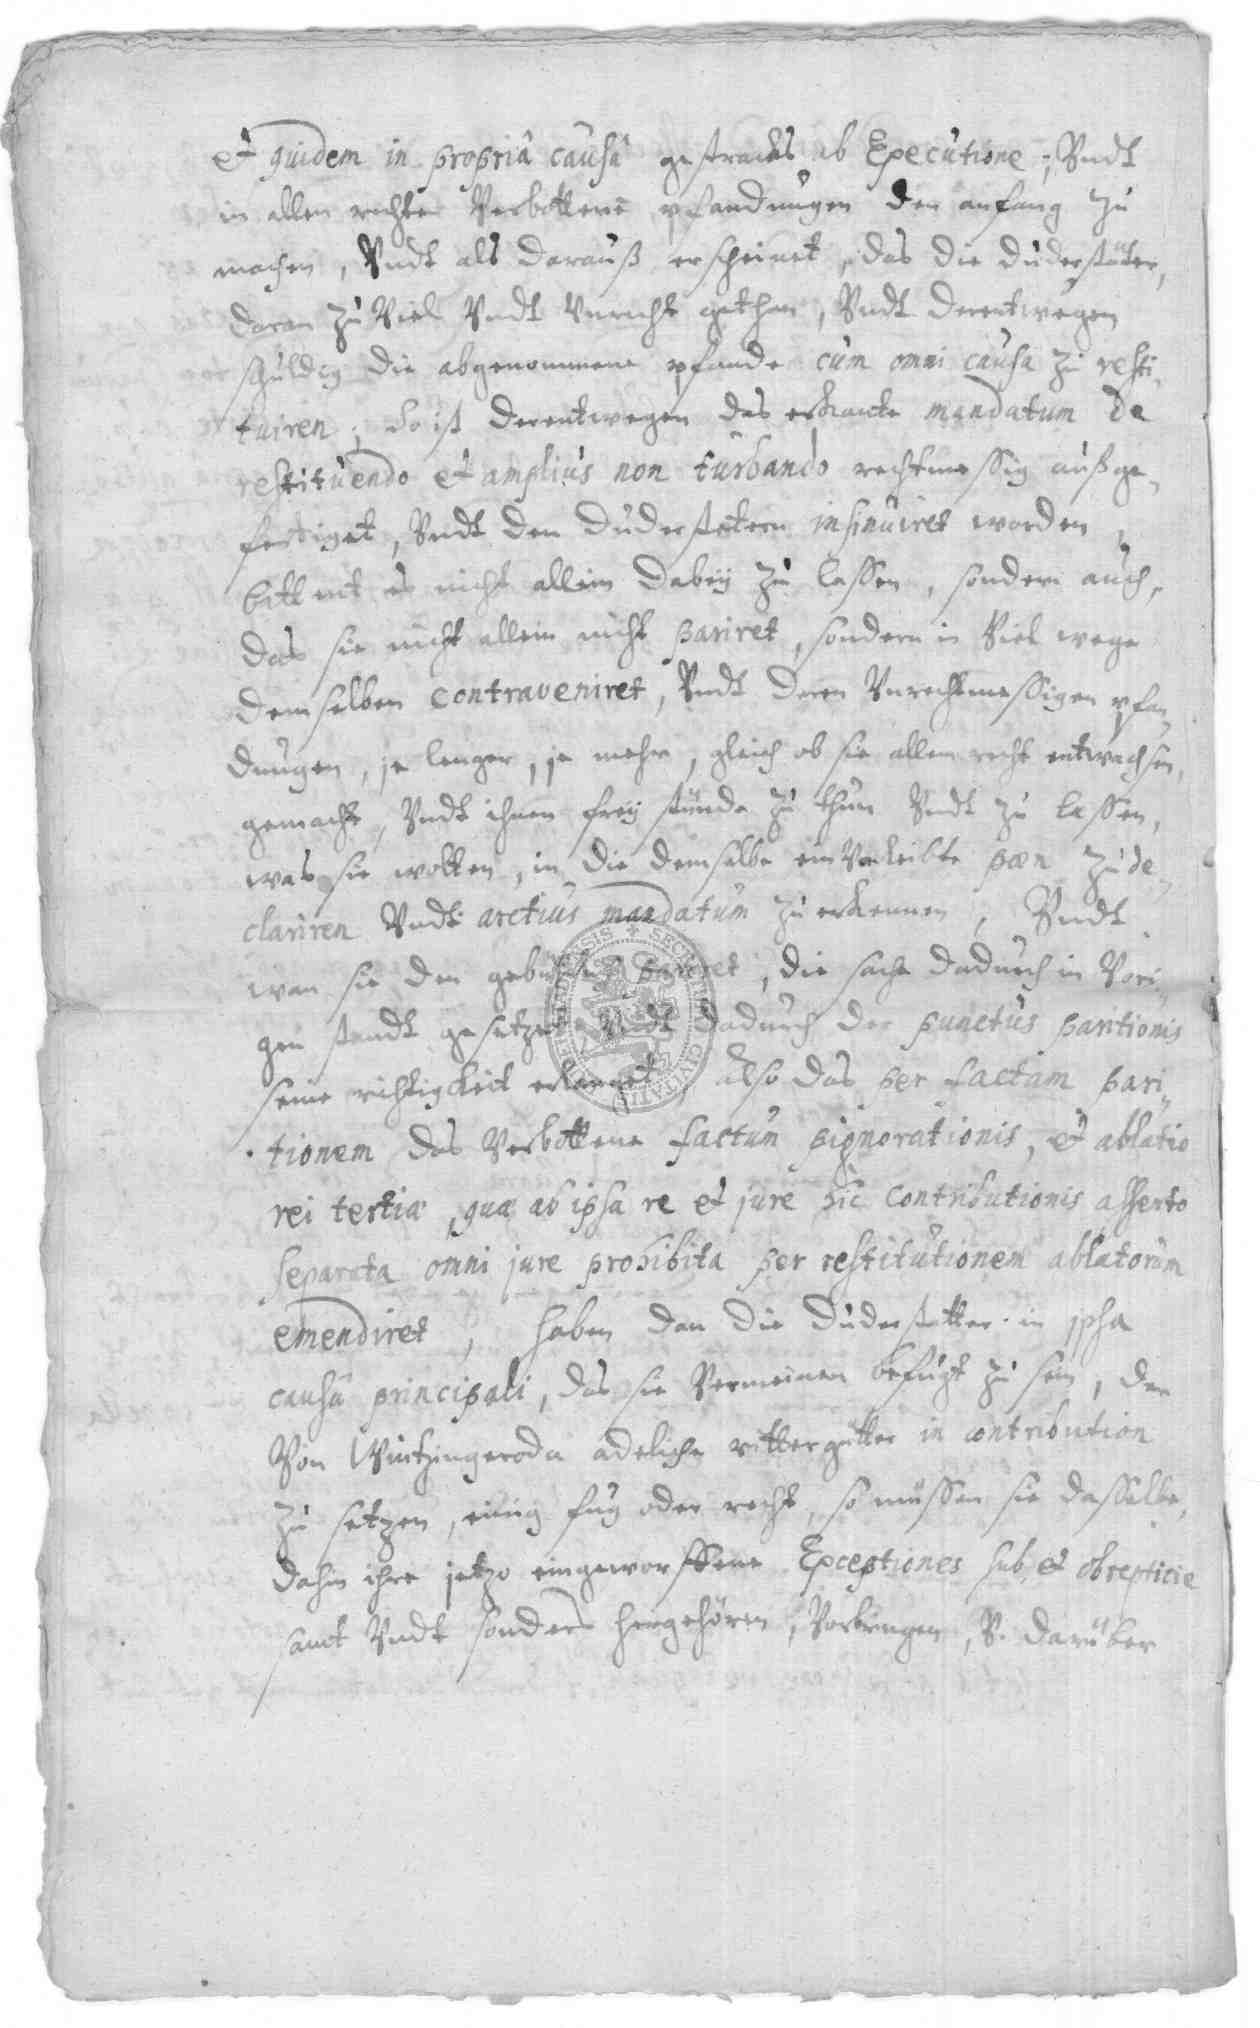 et quidem in propriâ causâ gestracks ab Executione, Vndt
in allen rechten Verbottene pfandungen den anfang zu
machen, Vndt als darauß erscheinet, das die Duderstäter,
daran zu Viel Vndt Vnrecht gethan, Vndt derentwegen
schuldig die abgenommene pfande cum omni causa zu resti„
tuiren, So ist derentwegen das erkante mandatum de
restituendo et amplius non turbando rechtmessig außge„
fertiget, Vndt den Duderstetern insinuiret worden,
bittent es nicht allein dabey zu lassen, sondern auch,
das sie nicht allein nicht pariret, sondern in Viel wege
demselben contraveniret, Vndt deren Vnrechtmessigen pfan„
dungen, je lenger, je mehr, gleich ob sie allem recht entwachsen,
gemacht, Vndt ihnen frey stünde zu thun Vndt zu lassen,
was sie wolten, in die demselbe einVerleibte pœn zu de„
clariren Vndt arctius mandatum zu erkennen, Vndt
wan sie den gebührlich pariret, die sache dadurch in Vori„
gen standt gesetzet, Vndt dadurch der punctus paritionis
seine richtigkeit erlanget, also das per factam pari„
tionem das Verbottene factum pignorationis, et ablatio
rei tertiæ, quæ ab ipsa re et jure hic contributionis asserto
separata omni jure prohibita per restitutionem ablatorum
emendiret, haben dan die Duderstatter in ipsa
causâ principali, das sie Vermeinen befugt zu sein, der
Von Wintzingeroda adeliche rittergütter in contribution
zu setzen, einig fug oder recht, so müssen sie dasselbe,
dahin ihre jetzo eingeworffene Exceptiones sub et obreptitiæ
samt Vndt sonders hergehören, Vorbringen, V. darüber